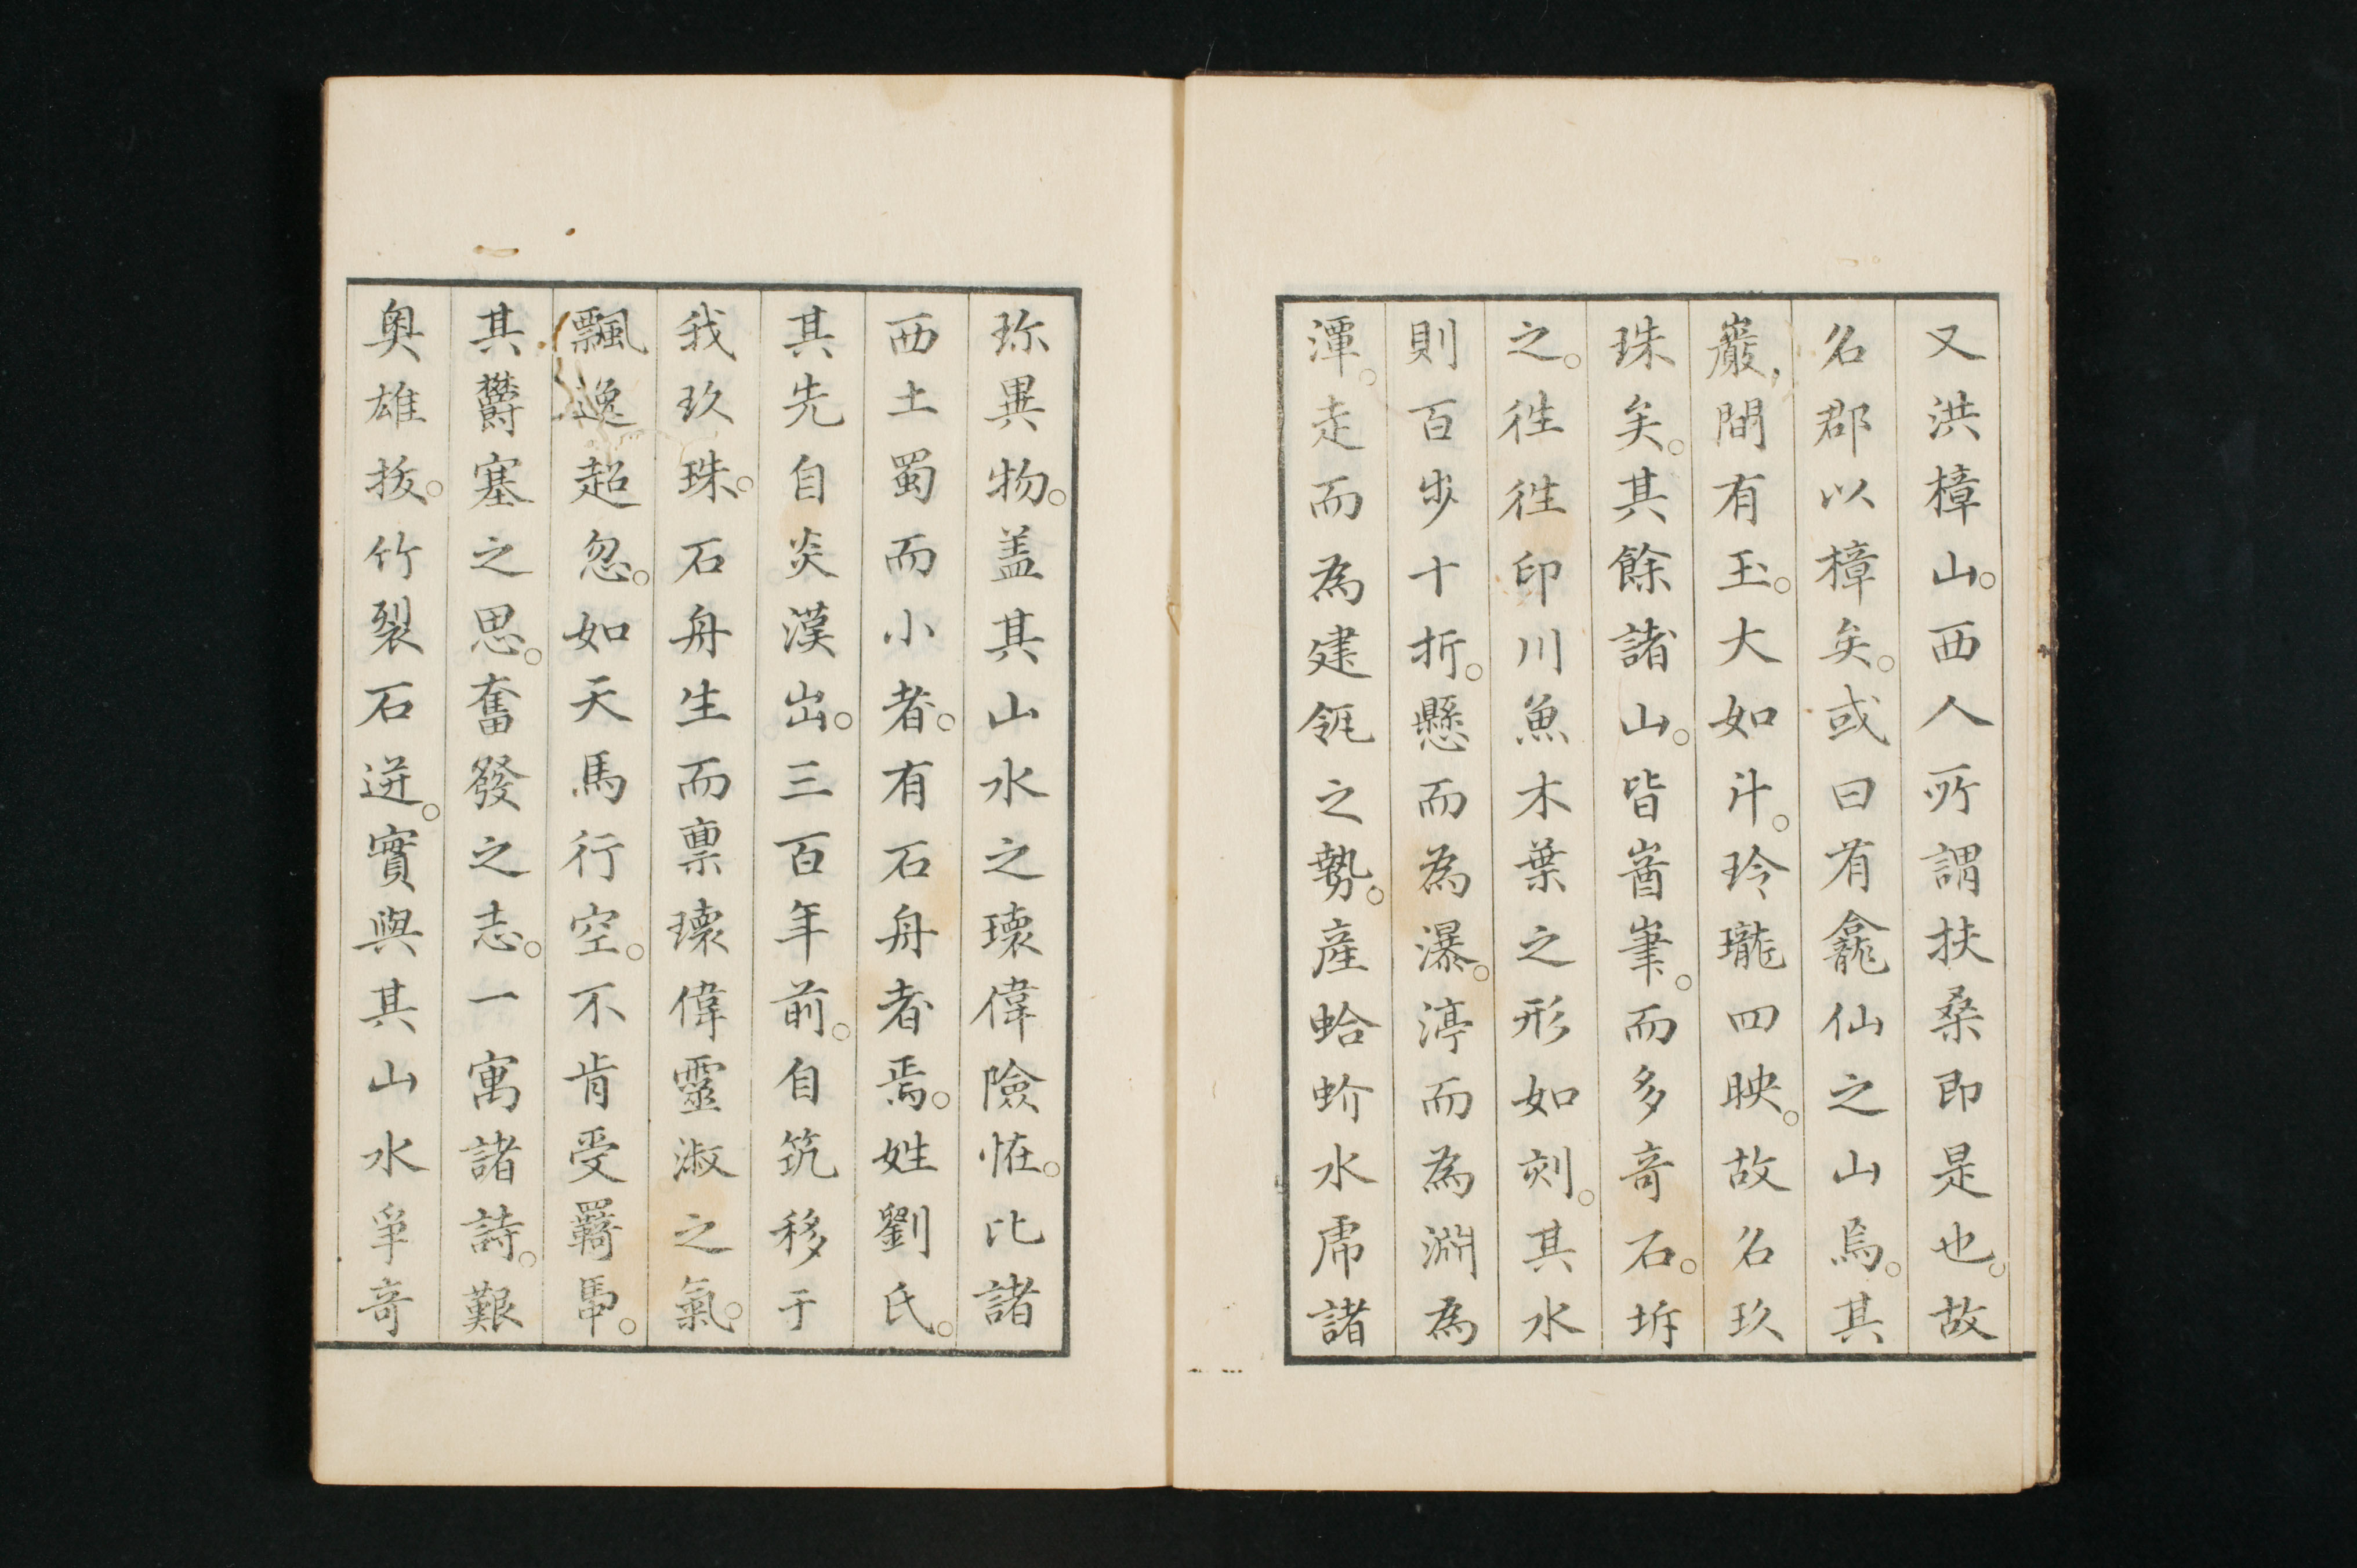 又洪樟山。西人所謂扶桑即是也。故
名郡以樟矣。或曰有龕仙之山焉。其
巖間有玉。大如斗。玲瓏四映。故名玖
珠矣。其餘諸山。皆崷崒。而多奇石。坼
之。徃徃印川魚木葉之形如刻。其水
則百步十折。懸而為瀑。渟而為淵為
潭。走而為建瓴之勢。產蛤蚧水虎諸
珎異物。盖其山水之瓌偉險恠。比諸
西土蜀而小者。有石舟者焉。姓劉氏。
其先自炎漢出。三百年前。自筑移于
我玖珠。石舟生而禀瓌偉靈淑之氣。
飄逸超忽。如天馬行空。不肯受羈馽。
其欝塞之思。奮發之志。一寓諸詩。艱
奥雄拔。竹裂石迸。實與其山水爭奇